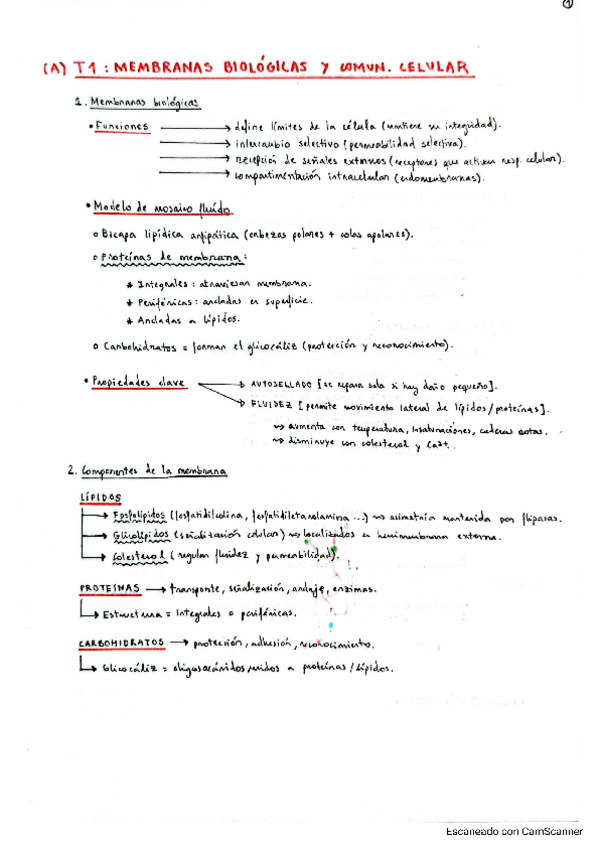 1
(A) T1: MEMBRANAS BIOLÓGICAS Y COMUN. CELULAR
1. Membranas biológicas
• Funciones → define límites de la célula (mantiene su integridad).
→ intercambio selectivo (permeabilidad selectiva).
→ recepción de señales externas (receptores que activan resp. celular).
→ compartimentación intracelular (endomembranas).
• Modelo de mosaico fluido
o Bicapa lipídica anfipática (cabezas polares + colas apolares).
o Proteínas de membrana:
* Integrales: atraviesan membrana.
* Periféricas: ancladas en superficie.
* Ancladas a lípidos.
o Carbohidratos = forman el glicocáliz (protección y reconocimiento).
• Propiedades clave → AUTOSELLADO [se repara sola si hay daño pequeño].
→ FLUIDEZ [permite movimiento lateral de lípidos/proteínas].
→ aumenta con temperatura, insaturaciones, cadenas cortas.
→ disminuye con colesterol y Ca2+.
2. Componentes de la membrana
LÍPIDOS
→ Fosfolípidos (fosfatidilcolina, fosfatidiletanolamina ...) → asimetría mantenida por flipasas.
→ Glicolípidos (señalización celular) → localizados en hemimembrana externa.
→ Colesterol (regular fluidez y permeabilidad).
PROTEÍNAS → transporte, señalización, anclaje, enzimas.
→ Estructura = Integrales o periféricas.
CARBOHIDRATOS → protección, adhesión, reconocimiento.
→ Glicocáliz = oligosacáridos unidos a proteínas/lípidos.
Escaneado con CamScanner